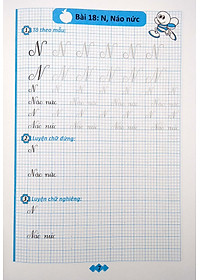 Bài 18: N, Náo nức
1 Tô theo mẫu:
N N N N N N
N N N N N N
N N N N N N
Náo nức Náo nức Náo nức
Náo nức Náo nức Náo nức
2 Luyện chữ đứng:
N
Náo nức
3 Luyện chữ nghiêng:
N
Náo nức